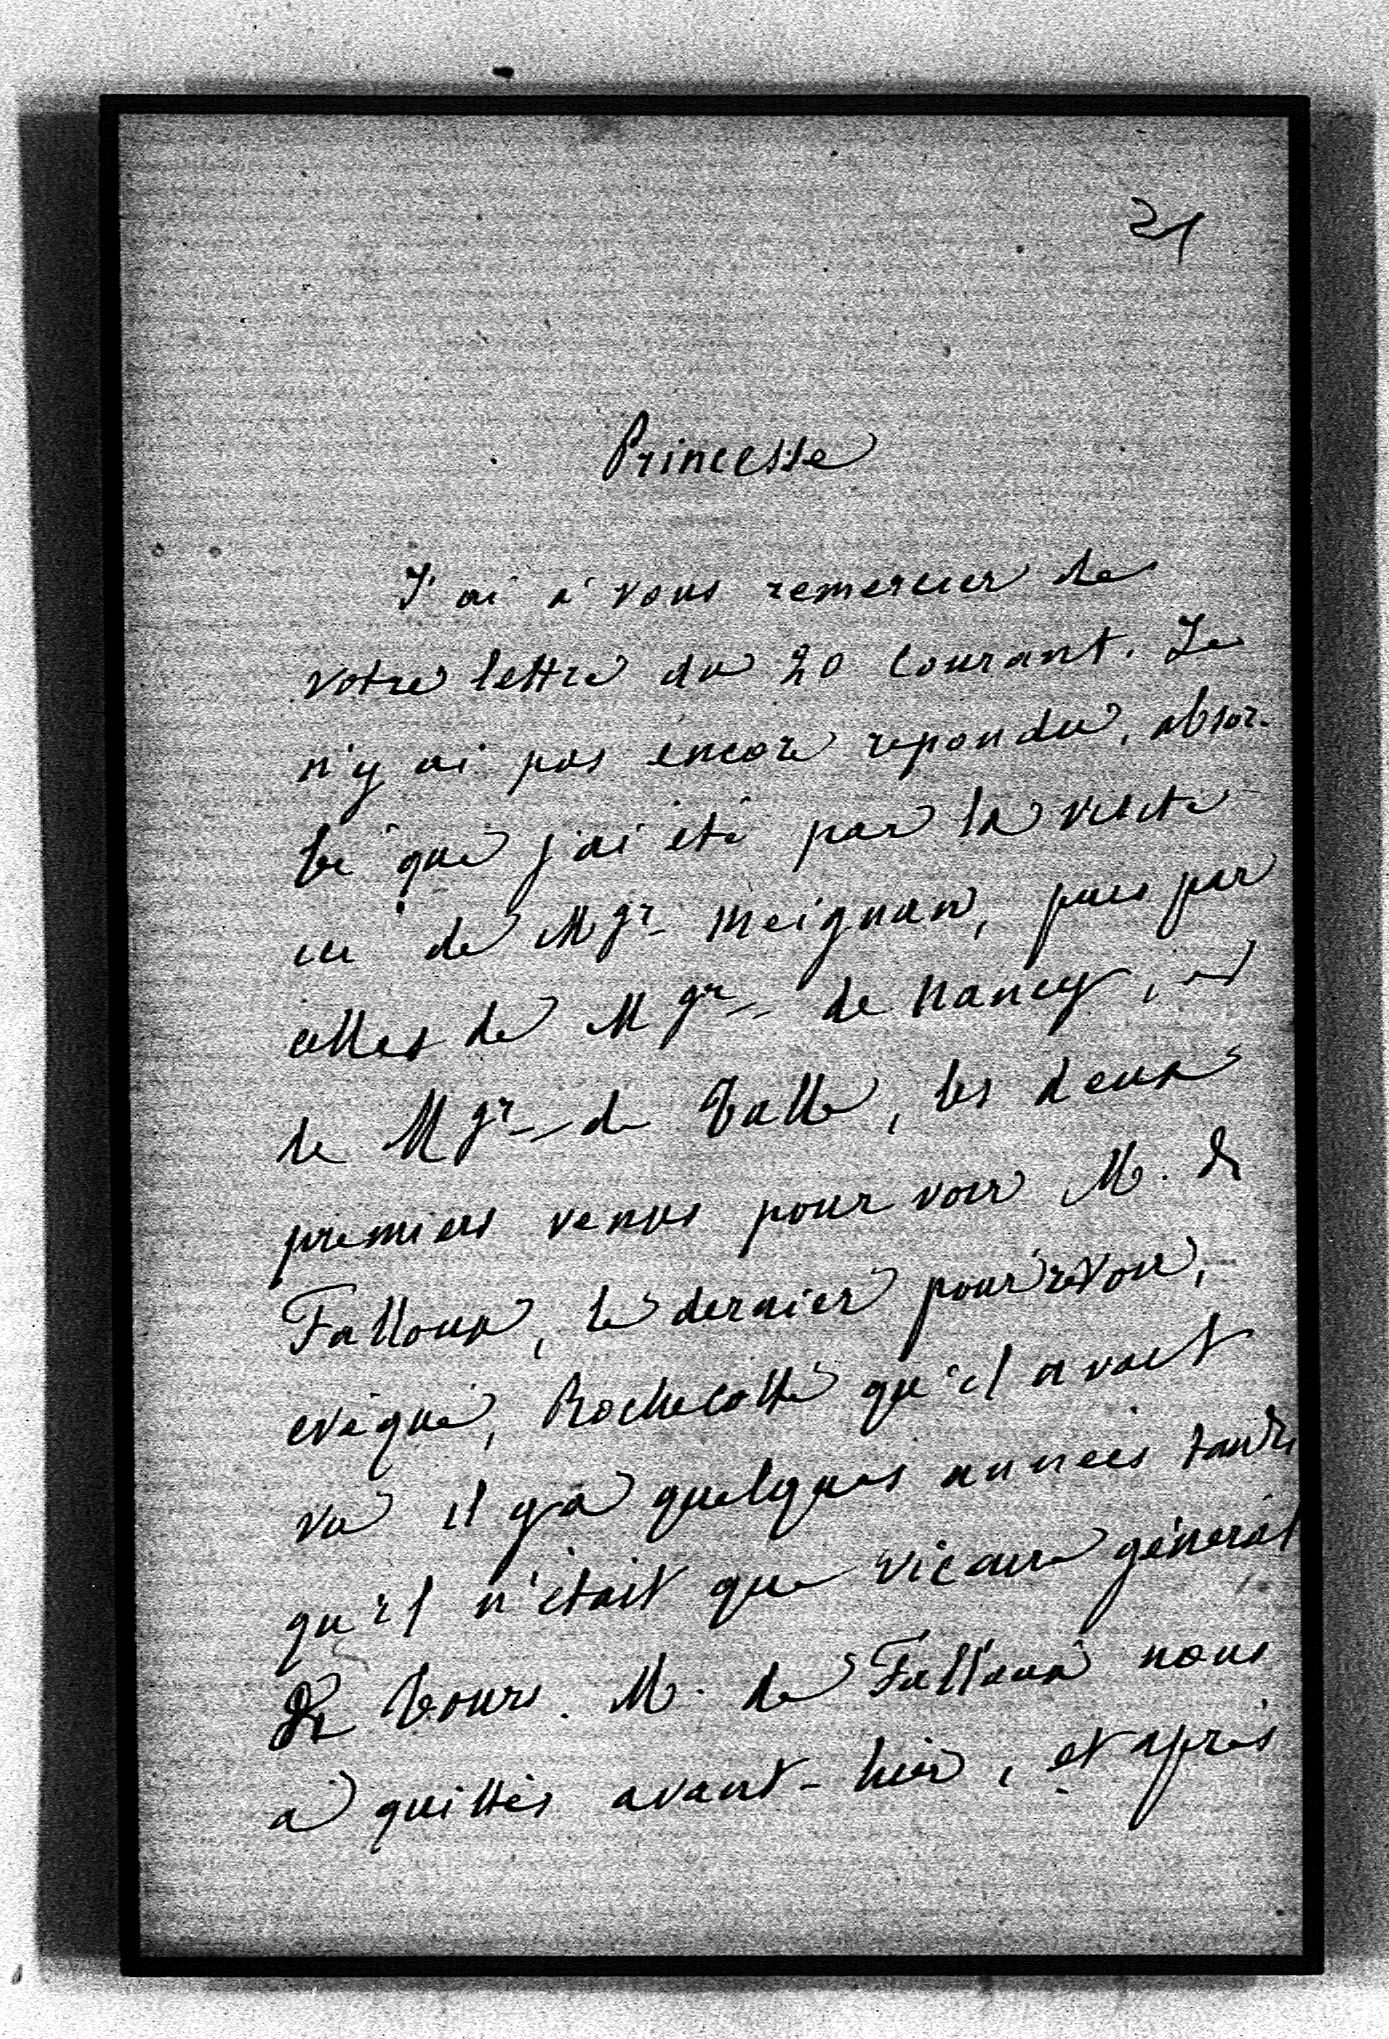 21
Princesse
J'ai à vous remercier de
votre lettre du 20 courant. Je
n'y ai pas encore repondu, absor-
bé que j'ai été par la visite
ici de Mgr. Meignan, puis par
celles de Mgr. de Nancy, et
de Mgr. de Tulle, les deux
premiers venus pour voir M. de
Falloux, le dernier pour revoir,
evêque, Rochecotte qu'il avait
vu il y a quelques années tandis
qu'il n'était que vicaire général
de Tours. M. de Falloux nous
a quittés avant-hier, et après